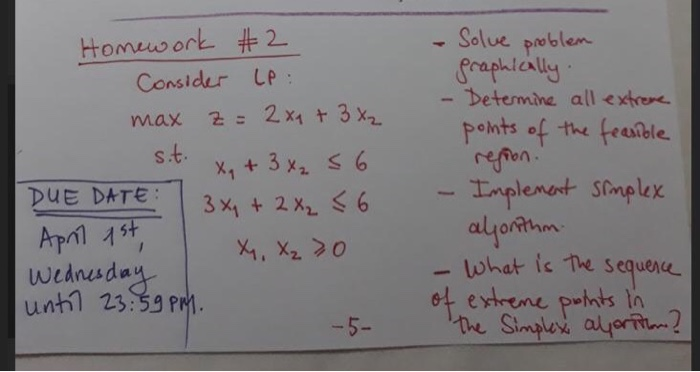 Homework #2
Consider LP:
max z = 2x₁ + 3x₂
s.t. x₁ + 3x₂ ≤ 6
3x₁ + 2x₂ ≤ 6
x₁, x₂ ≥ 0
DUE DATE:
April 1st,
Wednesday
until 23:59 PM.
- Solve problem
graphically.
- Determine all extreme
points of the feasible
region.
- Implement simplex
algorithm.
- What is the sequence
of extreme points in
the Simplex algorithm?
-5-